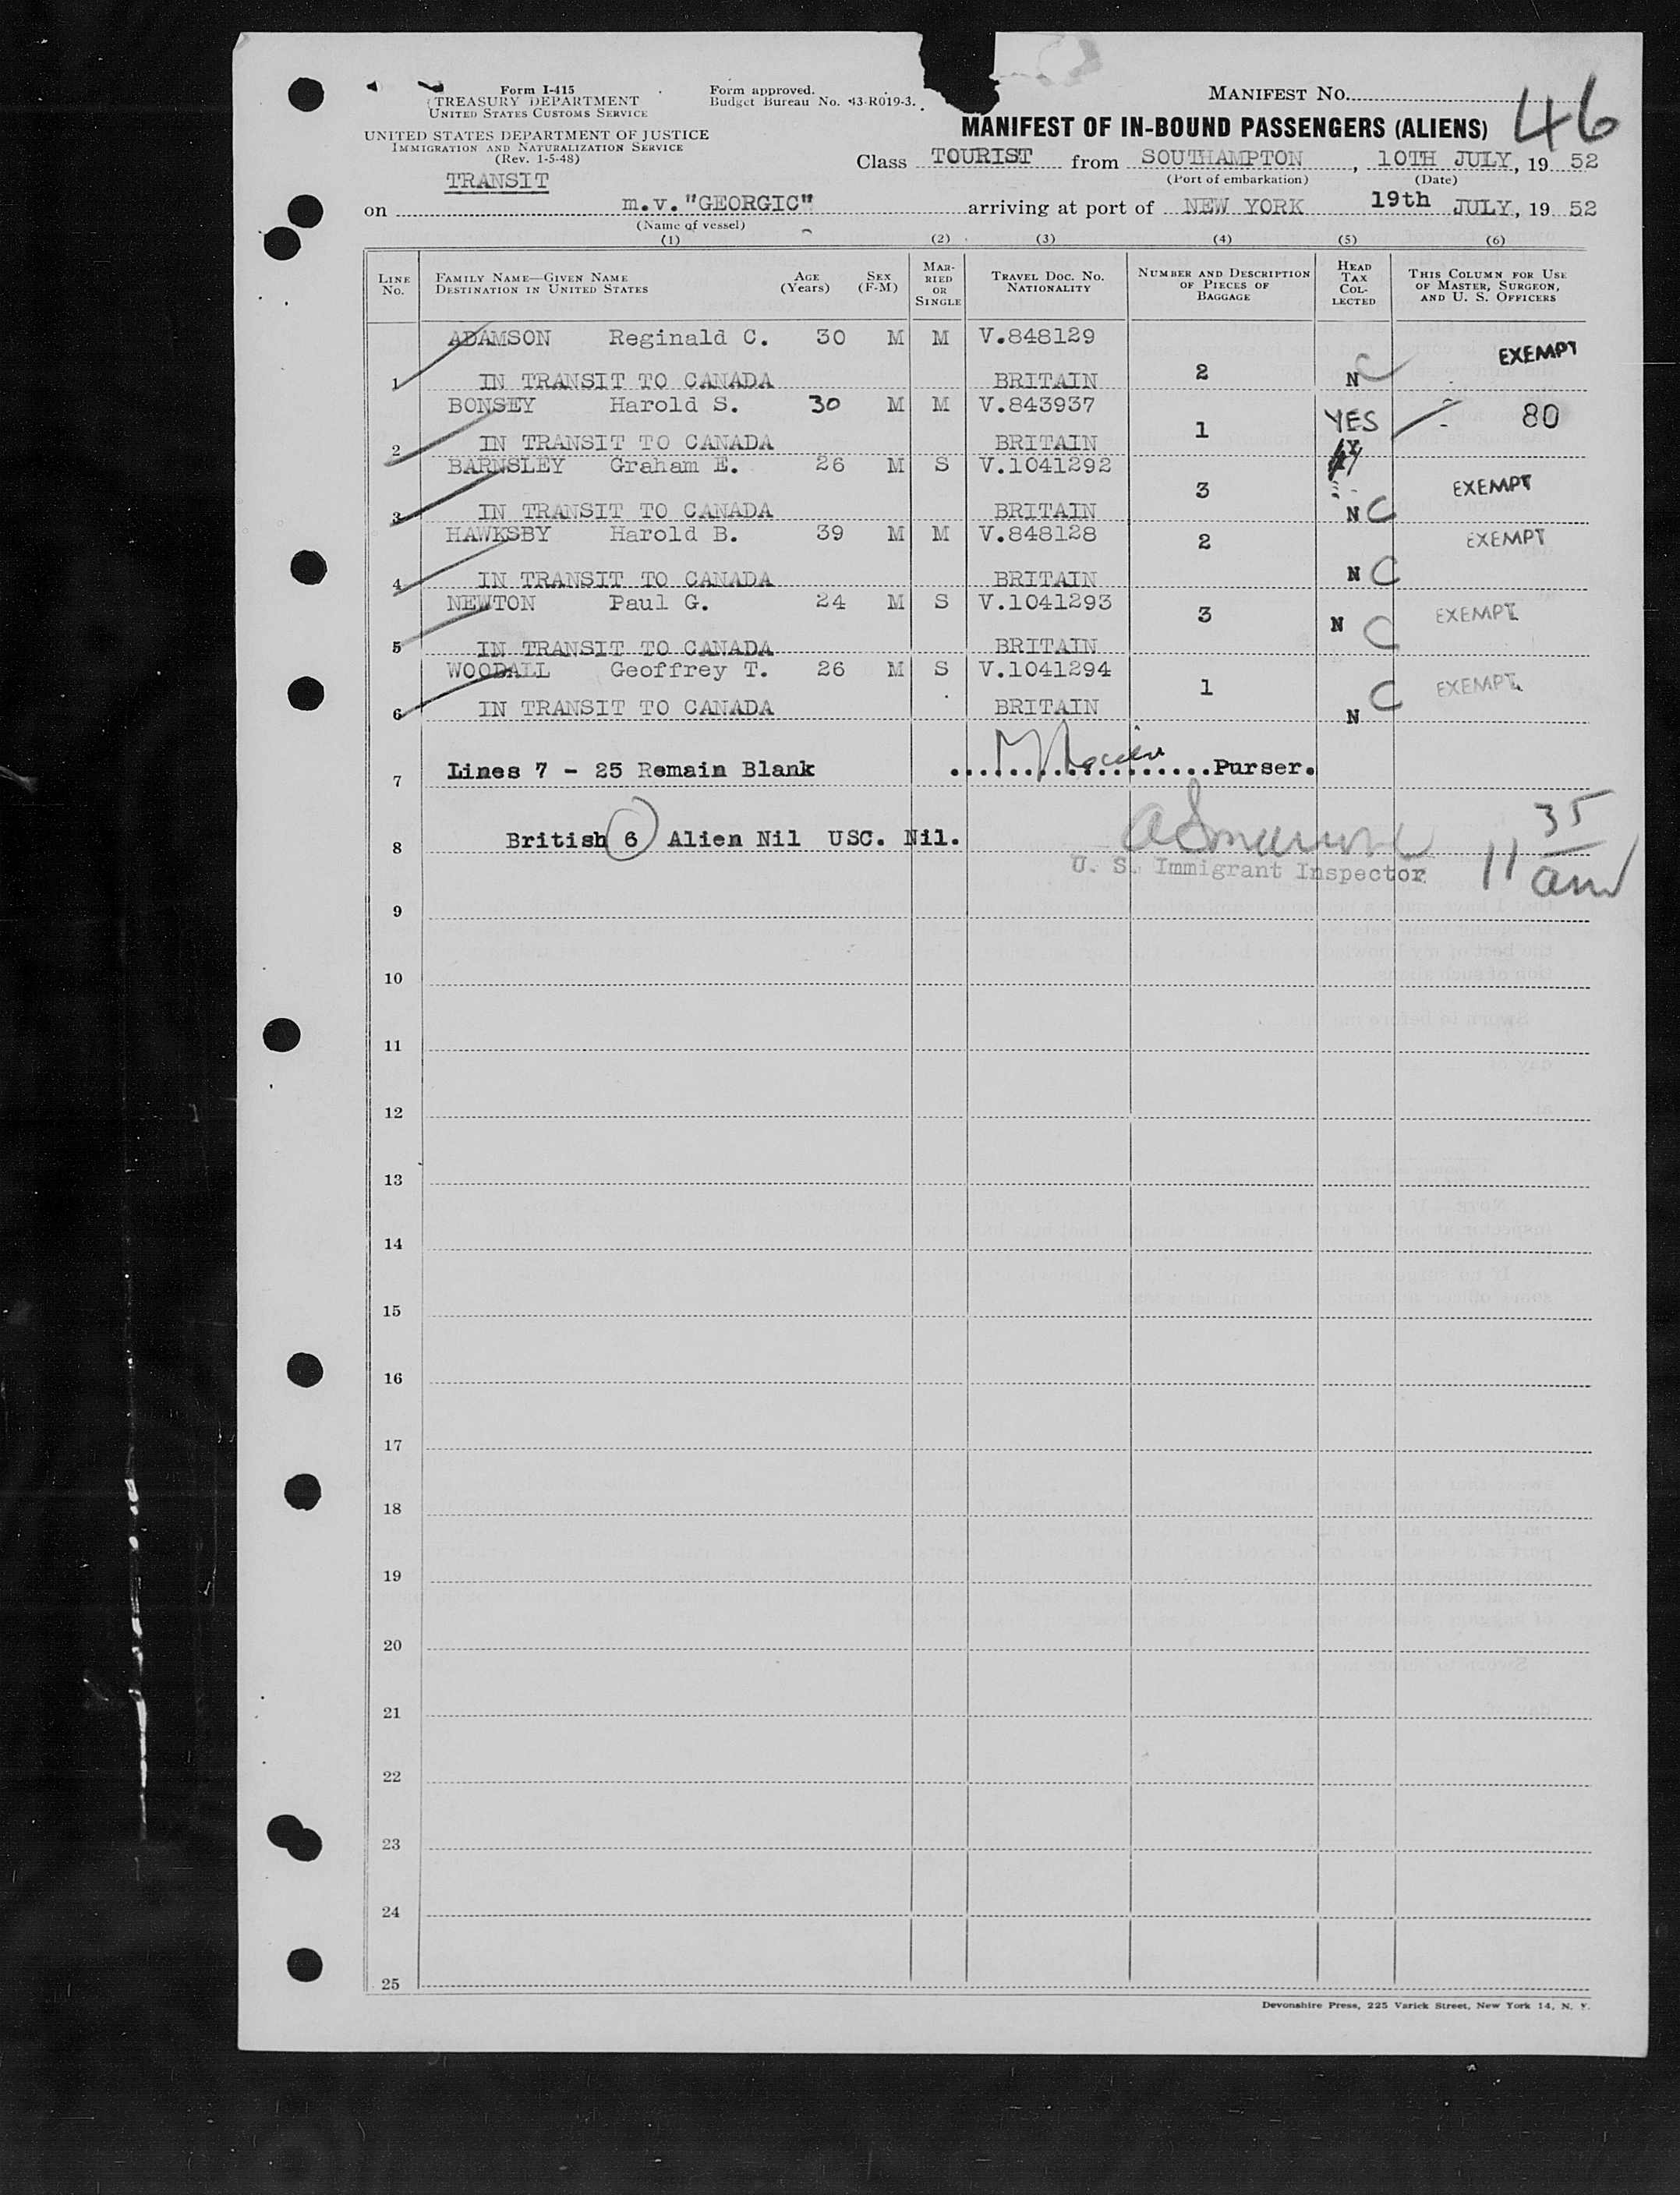 Form I-415
TREASURY DEPARTMENT
UNITED STATES CUSTOMS SERVICE
UNITED STATES DEPARTMENT OF JUSTICE
IMMIGRATION AND NATURALIZATION SERVICE
(Rev. 1-5-48)
TRANSIT
Form approved.
Budget Bureau No. 43-R019-3.
MANIFEST NO. 46
MANIFEST OF IN-BOUND PASSENGERS (ALIENS)
Class TOURIST from SOUTHAMPTON, 10TH JULY, 19 52
(Port of embarkation) (Date)
on m.v."GEORGIC" arriving at port of NEW YORK 19th JULY, 19 52
(Name of vessel)
(1) (2) (3) (4) (5) (6)
LINE NO. FAMILY NAME—GIVEN NAME DESTINATION IN UNITED STATES AGE (YEARS) SEX (F-M) MARRIED OR SINGLE TRAVEL DOC. NO. NATIONALITY NUMBER AND DESCRIPTION OF PIECES OF BAGGAGE HEAD TAX COLLECTED THIS COLUMN FOR USE OF MASTER, SURGEON, AND U. S. OFFICERS
ADAMSON Reginald C. 30 M M V.848129 EXEMPT
1 IN TRANSIT TO CANADA BRITAIN 2 N C
BONSEY Harold S. 30 M M V.843937 YES 80
2 IN TRANSIT TO CANADA BRITAIN 1
BARNSLEY Graham E. 26 M S V.1041292 EXEMPT
3 IN TRANSIT TO CANADA BRITAIN 3 N C
HAWKSBY Harold B. 39 M M V.848128 EXEMPT
4 IN TRANSIT TO CANADA BRITAIN 2 N C
NEWTON Paul G. 24 M S V.1041293 EXEMPT
5 IN TRANSIT TO CANADA BRITAIN 3 N C
WOODALL Geoffrey T. 26 M S V.1041294 EXEMPT
6 IN TRANSIT TO CANADA BRITAIN 1 N C
7 Lines 7 - 25 Remain Blank Purser.
8 British 6 Alien Nil USC. Nil.
U. S. Immigrant Inspector 11 35 am
9
10
11
12
13
14
15
16
17
18
19
20
21
22
23
24
25
Devonshire Press, 225 Varick Street, New York 14, N. Y.